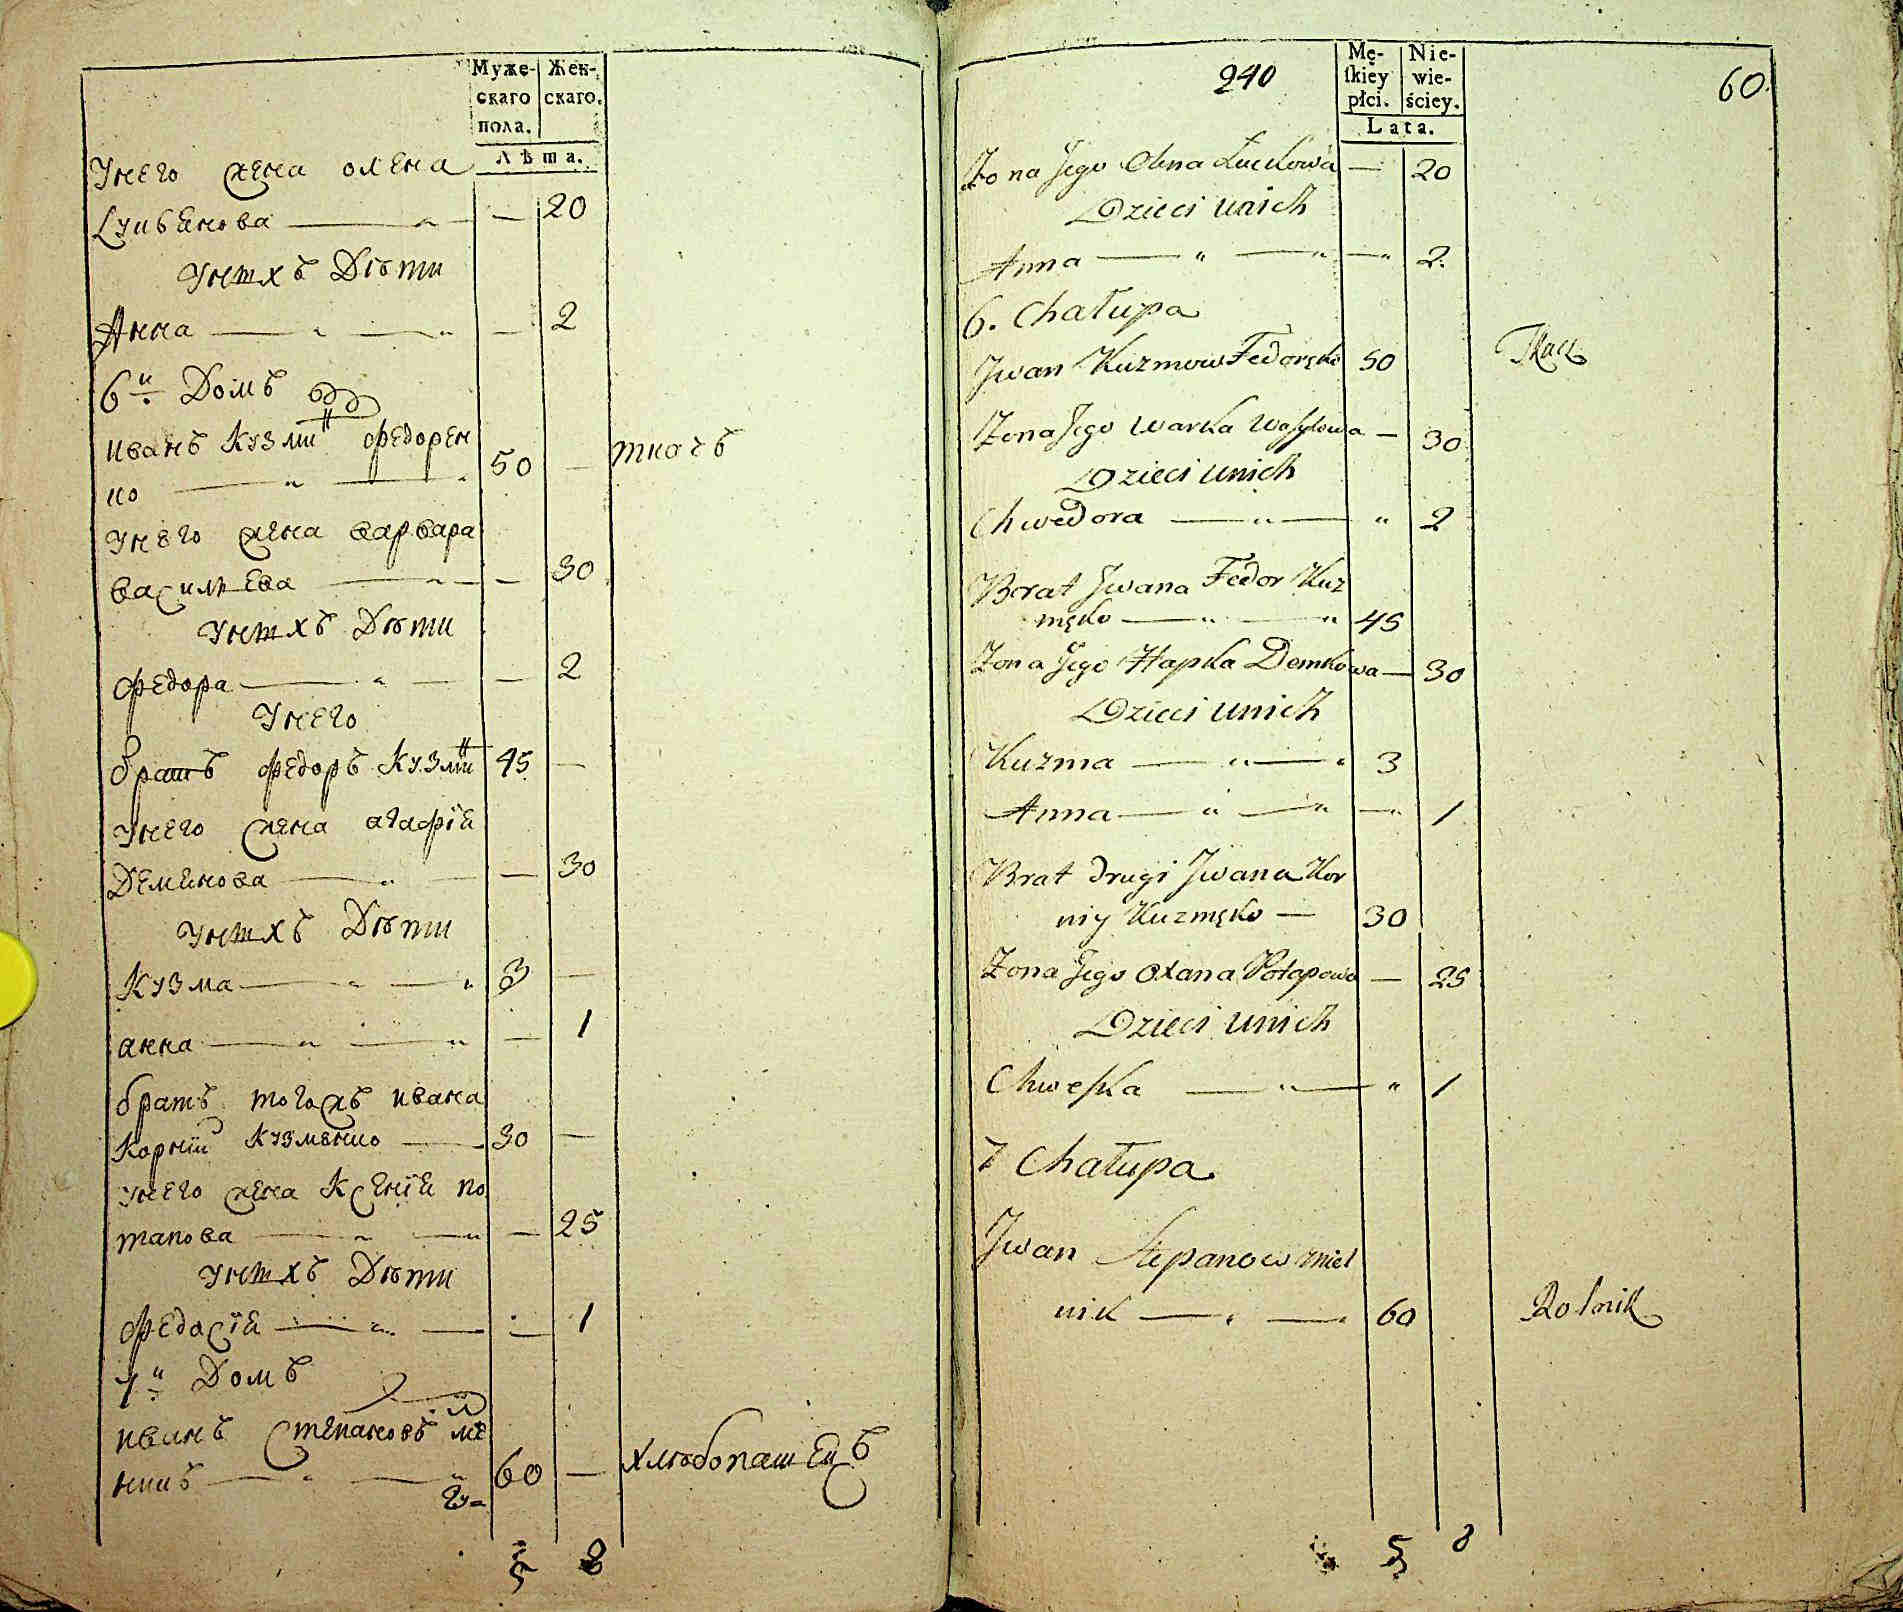 Муже-
скаго
пола.
Жен-
скаго.
Лѣта.
Унего жена олена
Луцкенова — — 20
Унихъ Дѣти
Анна — — — 2
6й Домъ
иванъ Кузминъ федорен
ко — — 50 — ткачъ
Унего жена варвара
василиева — — 30
Унихъ Дѣти
федора — — — 2
Унего
братъ федоръ Кузминъ 45 —
Унего жена агафія
Демкнова — — 30
Унихъ Дѣти
Кузма — — 3 —
анна — — — 1
братъ тогожъ ивана
Корній Кузменко — 30 —
Унего жена Ксенія по
тапова — — — 25
Унихъ Дѣти
федосія — — — 1
7й Домъ
иванъ Степановъ мел
никъ — — 60 — хлѣбопашецъ
5 8
240
60.
Mę-
skiey
płci.
Nie-
wie-
ściey.
Lata.
Żona Jego Olena Łuckowa — 20
Dzieci unich
Anna — — — 2.
6. Chałupa
Jwan Kuzmow Fedoręko 50 Tkacz
Żona Jego Warka Wasylowa — 30
Dzieci unich
Chwedora — — 2
Brat Jwana Fedor Kuz
męko — — 45
Żona Jego Hapka Demkowa — 30
Dzieci unich
Kuzma — — 3
Anna — — — 1
Brat drugi Jwana Kor
niy Kuzmęko — 30
Żona Jego Oxana Potapowa — 25
Dzieci unich
Chweska — — 1
7 Chałupa
Jwan Stepanow miel
nik — — 60 Rolnik
5 8